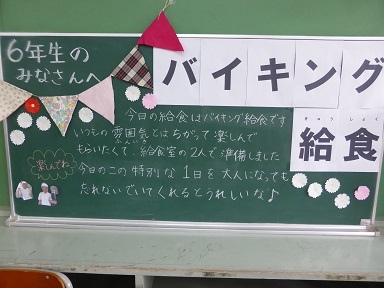 6年生の
みなさんへ
バイキング
きゅう しょく
給食
今日の給食はバイキング給食です
いつもの雰囲気とはちがって楽しんで
ふんいき
もらいたくて、給食室の2人で準備しました
今日のこの特別な1日を大人になっても
忘れないでいてくれるとうれしいな♪
楽しんでね